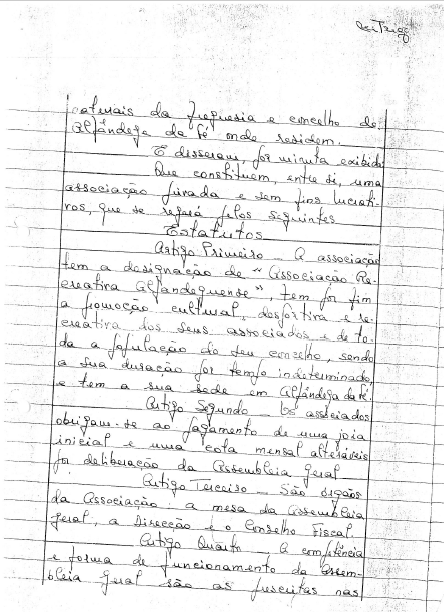 naturais da freguesia e concelho de
Alfândega da Fé onde residem.
E disseram, por minuta exibida
Que constituem, entre si, uma
associação privada e sem fins lucrati-
vos, que se regerá pelos seguintes
Estatutos
Artigo Primeiro — A associação
tem a designação de "Associação Re-
creativa Alfandeguense", tem por fim
a promoção cultural, desportiva e re-
creativa dos seus associados e de to-
da a população do seu concelho, sendo
a sua duração por tempo indeterminado,
e tem a sua sede em Alfândega da Fé.
Artigo Segundo — Os associados
obrigam-se ao pagamento de uma joia
inicial e uma cota mensal alteráveis
por deliberação da Assembleia geral
Artigo Terceiro — São órgãos
da Associação: a mesa da Assembleia
geral, a Direcção e o Conselho Fiscal.
Artigo Quarto — A competência
e forma de funcionamento da Assem-
bleia geral são as prescritas nas